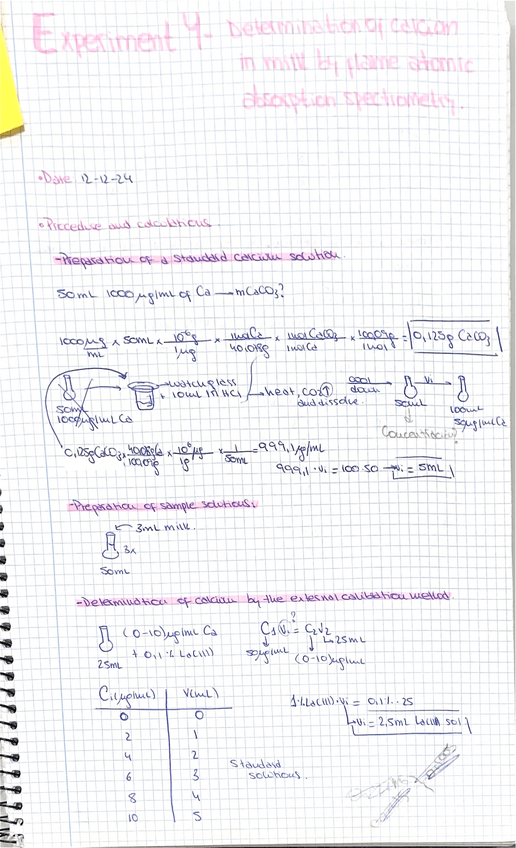 Experiment 4- Determination of calcium
in milk by flame atomic
absorption spectrometry.
• Date 12-12-24
• Procedure and calculations
- Preparation of a standard calcium solution.
50mL 1000 µg/mL of Ca → mCaCO3?
1000 µg/mL × 50mL × 10⁻⁶g/1µg × 1mol Ca/40,078g × 1mol CaCO3/1mol Ca × 100,09g/1mol = 0,125g CaCO3
50mL
1000 µg/mL Ca
→ watch glass
+ 10mL 1M HCl
→ heat, CO2↑
and dissolve
cool down →
50mL
Vi →
100mL
50 µg/mL Ca
Concentration?
0,125g CaCO3 × 40,08g Ca/100,09g × 10⁶ µg/1g × 1/50mL = 999,1 µg/mL
999,1 · Vi = 100 · 50 → Vi = 5mL
- Preparation of sample solutions:
3mL milk.
3x
50mL
- Determination of calcium by the external calibration method.
(0-10) µg/mL Ca
+ 0,1% La(III)
25mL
C1 Vi = C2V2
?
50 µg/mL
25mL
(0-10) µg/mL
Ci (µg/mL) V(mL)
0 0
2 1
4 2
6 3
8 4
10 5
Standard
solutions.
1% La(III) · Vi = 0,1% · 25
Vi = 2,5mL La(III) sol